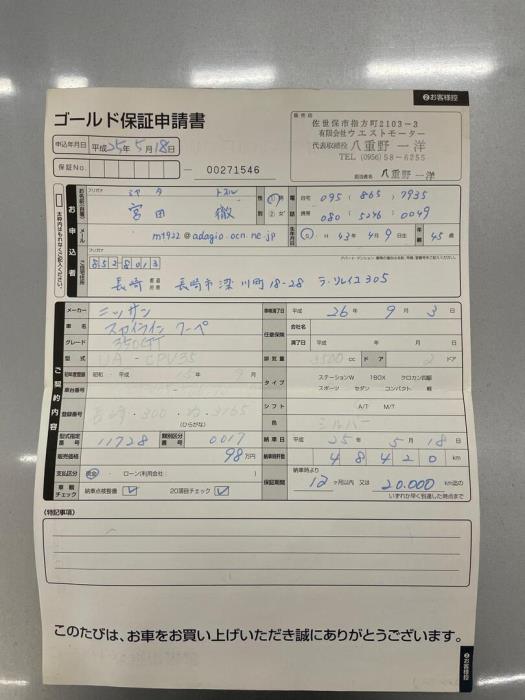 ❷お客様控
ゴールド保証申請書
申込年月日 平成25年5月18日
保証No. 00271546
販売店
佐世保市指方町2103-3
有限会社ウエストモーター
代表取締役 八重野 一洋
TEL (0956) 58-6255
担当者名 八重野 一洋
太枠内はもれなくご記入ください。
お申込者
フリガナ ミヤタ トオル
お名前(名義) 宮田 徹
性別 ①男 2 女
電話 自宅 095 ( 865 ) 7935
携帯 080 ( 5246 ) 0049
メール mt922@adagio.ocn.ne.jp
生年月日 H 43年4月9日生 年齢 45歳
フリガナ
852-8013
アパート・マンション
長崎 都道府県 長崎市梁川町18-28 ラ・ソレイユ305
ご契約内容
メーカー ニッサン
車検満了日 平成 26年 9月 3日
車名 スカイライン クーペ
任意保険 会社名
グレード 350GT
満了日 平成 年 月 日
型式 UA-CPV35
排気量 3500 cc ドア 2 ドア
初年度登録 昭和・平成 15年 9月
タイプ ステーションW 1BOX クロカン四駆
スポーツ セダン コンパクト 軽
車台番号
シフト A/T M/T
登録番号 長崎・300
(ひらがな)
色 シルバー
型式指定番号 11728 類別区分番号 0017
納車日 平成 25年 5月 18日
販売価格 98万円
納車時距離 48420 km
支払区分 現金・ローン(利用会社: )
保証期間 納車時より
12ヶ月以内 又は 20.000 km迄の
いずれか早く到達した時点まで
車輌チェック 納車点検整備 ☑ 20項目チェック ☑
(特記事項)
このたびは、お車をお買い上げいただき誠にありがとうございます。
❷お客様控